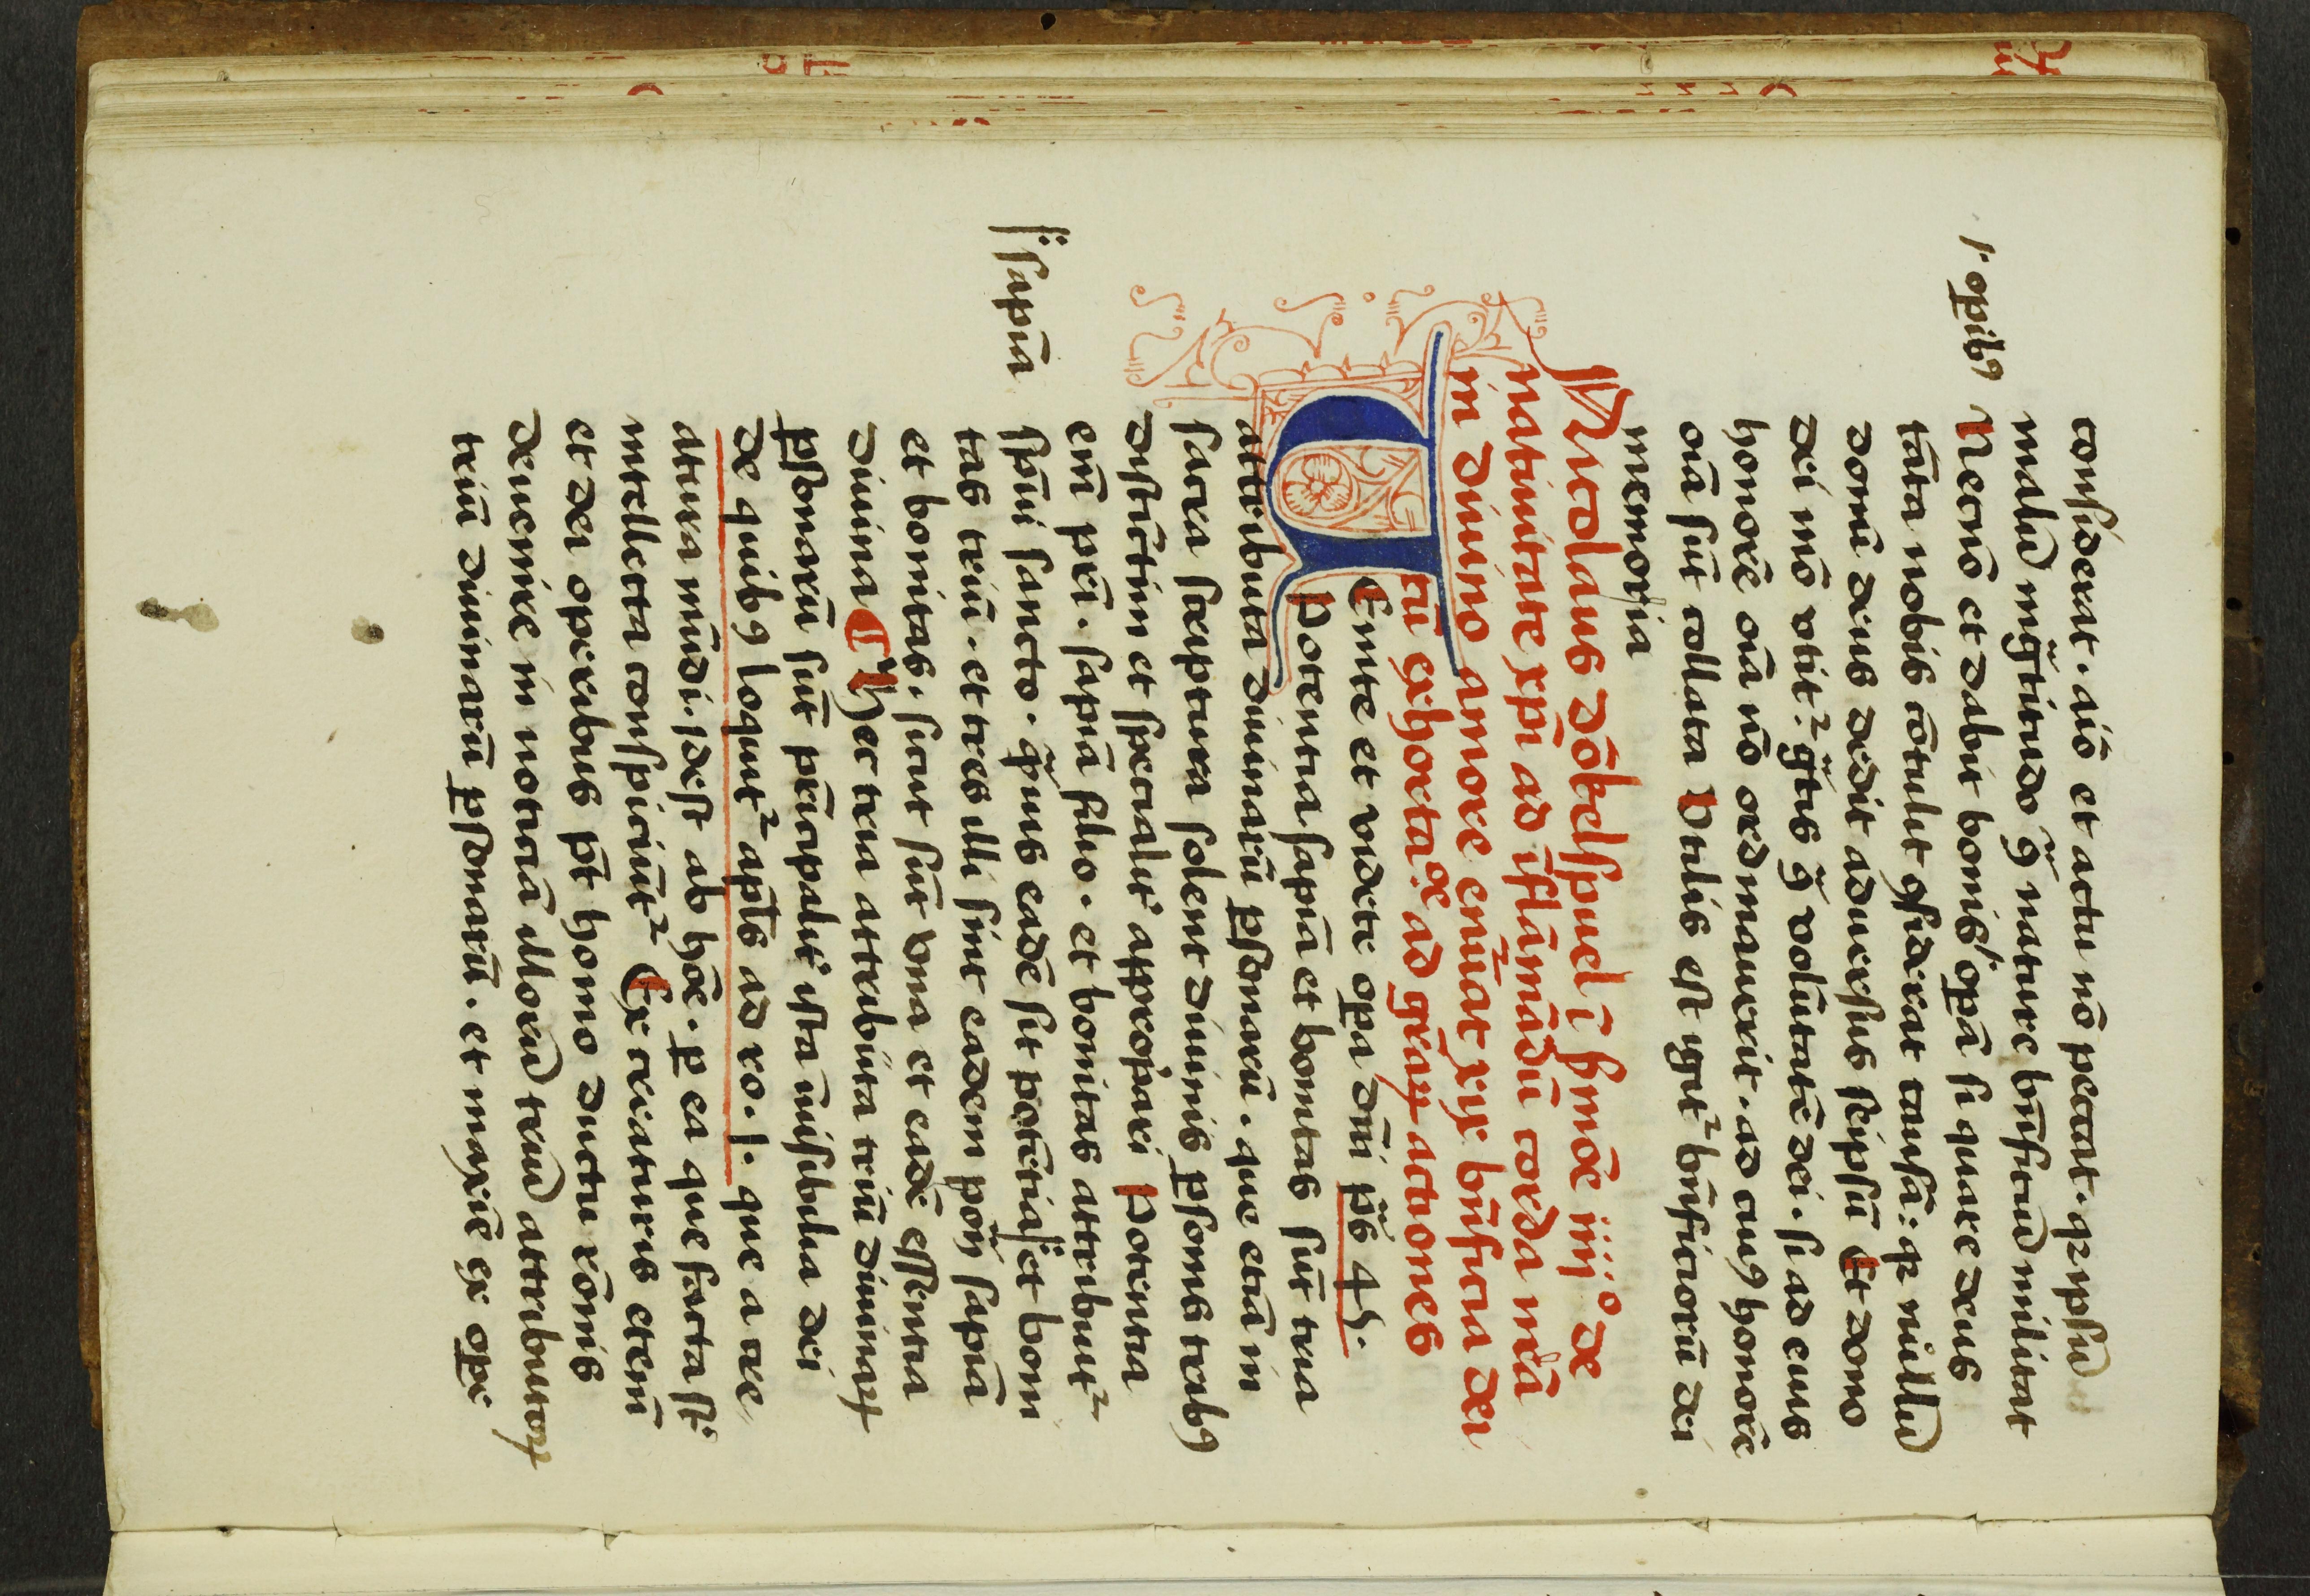 considerat. aīo et actu nō peccat. q̄ ipsū
malū īḡtitudo q̄ nature bn̄ficiū militat
1. opibꝫ
Necnō et dabit bonis opā si quare deus
tāta nobis cōtulit ꝯsiderat causā: qꝫ nullū
donū deus dedit aduersus seipsū Et dono
dei nō vtit² ḡtis q̄ volūtatē dei. si ad eius
honorē oīa nō ordinauerit. ad cuiꝫ honorē
oīa sūt collata Vtilis est igit² bn̄ficiorū dei
memoria
Nicolaus dōkelspuel ī sm̄oe iiijº de
natiuitate xp̄i ad īflāmādū corda nr̄a
in diuino amore enūat xij bn̄ficia dei
cū exhortacōe ad gr̄aꝝ actiones
Uenite et videte opa dn̄i p̄s 45.
Potentia sapīa et bonitas sūt tria
attributa diuinarū ꝑsonarū. que etiā in
sacra scriptura solent diuinis ꝑsonis tribꝫ
distīctim et specialit̾ appropari Potentia
eīn pr̄i. sapīa filio. et bonitas attribuit²
sp̄ui sancto. q̄uis eadē sit potētia et boni
s: sapīa
tas triū. et tres illi sint eadem pōꝫ sapīa
et bonitas, sicut sūt vna et eadē essentia
diuina Hec tria attributa triū diuinaꝝ
ꝑsonarū sūt p̄ncipalit̾ ista īuisibilia dei
de quibꝫ loquit² apl̄s ad ro. 1. que a cre
atura mūdi. idest ab hōe. ꝑ ea que facta sūt
intellecta conspiciūt² Ex creaturis etenī
et dei operibus pt̄ homo ductu rōnis
deuenire in noticiā illorū triū attributoꝝ
triū diuinarū ꝑsonarū. et maxīe ex ope